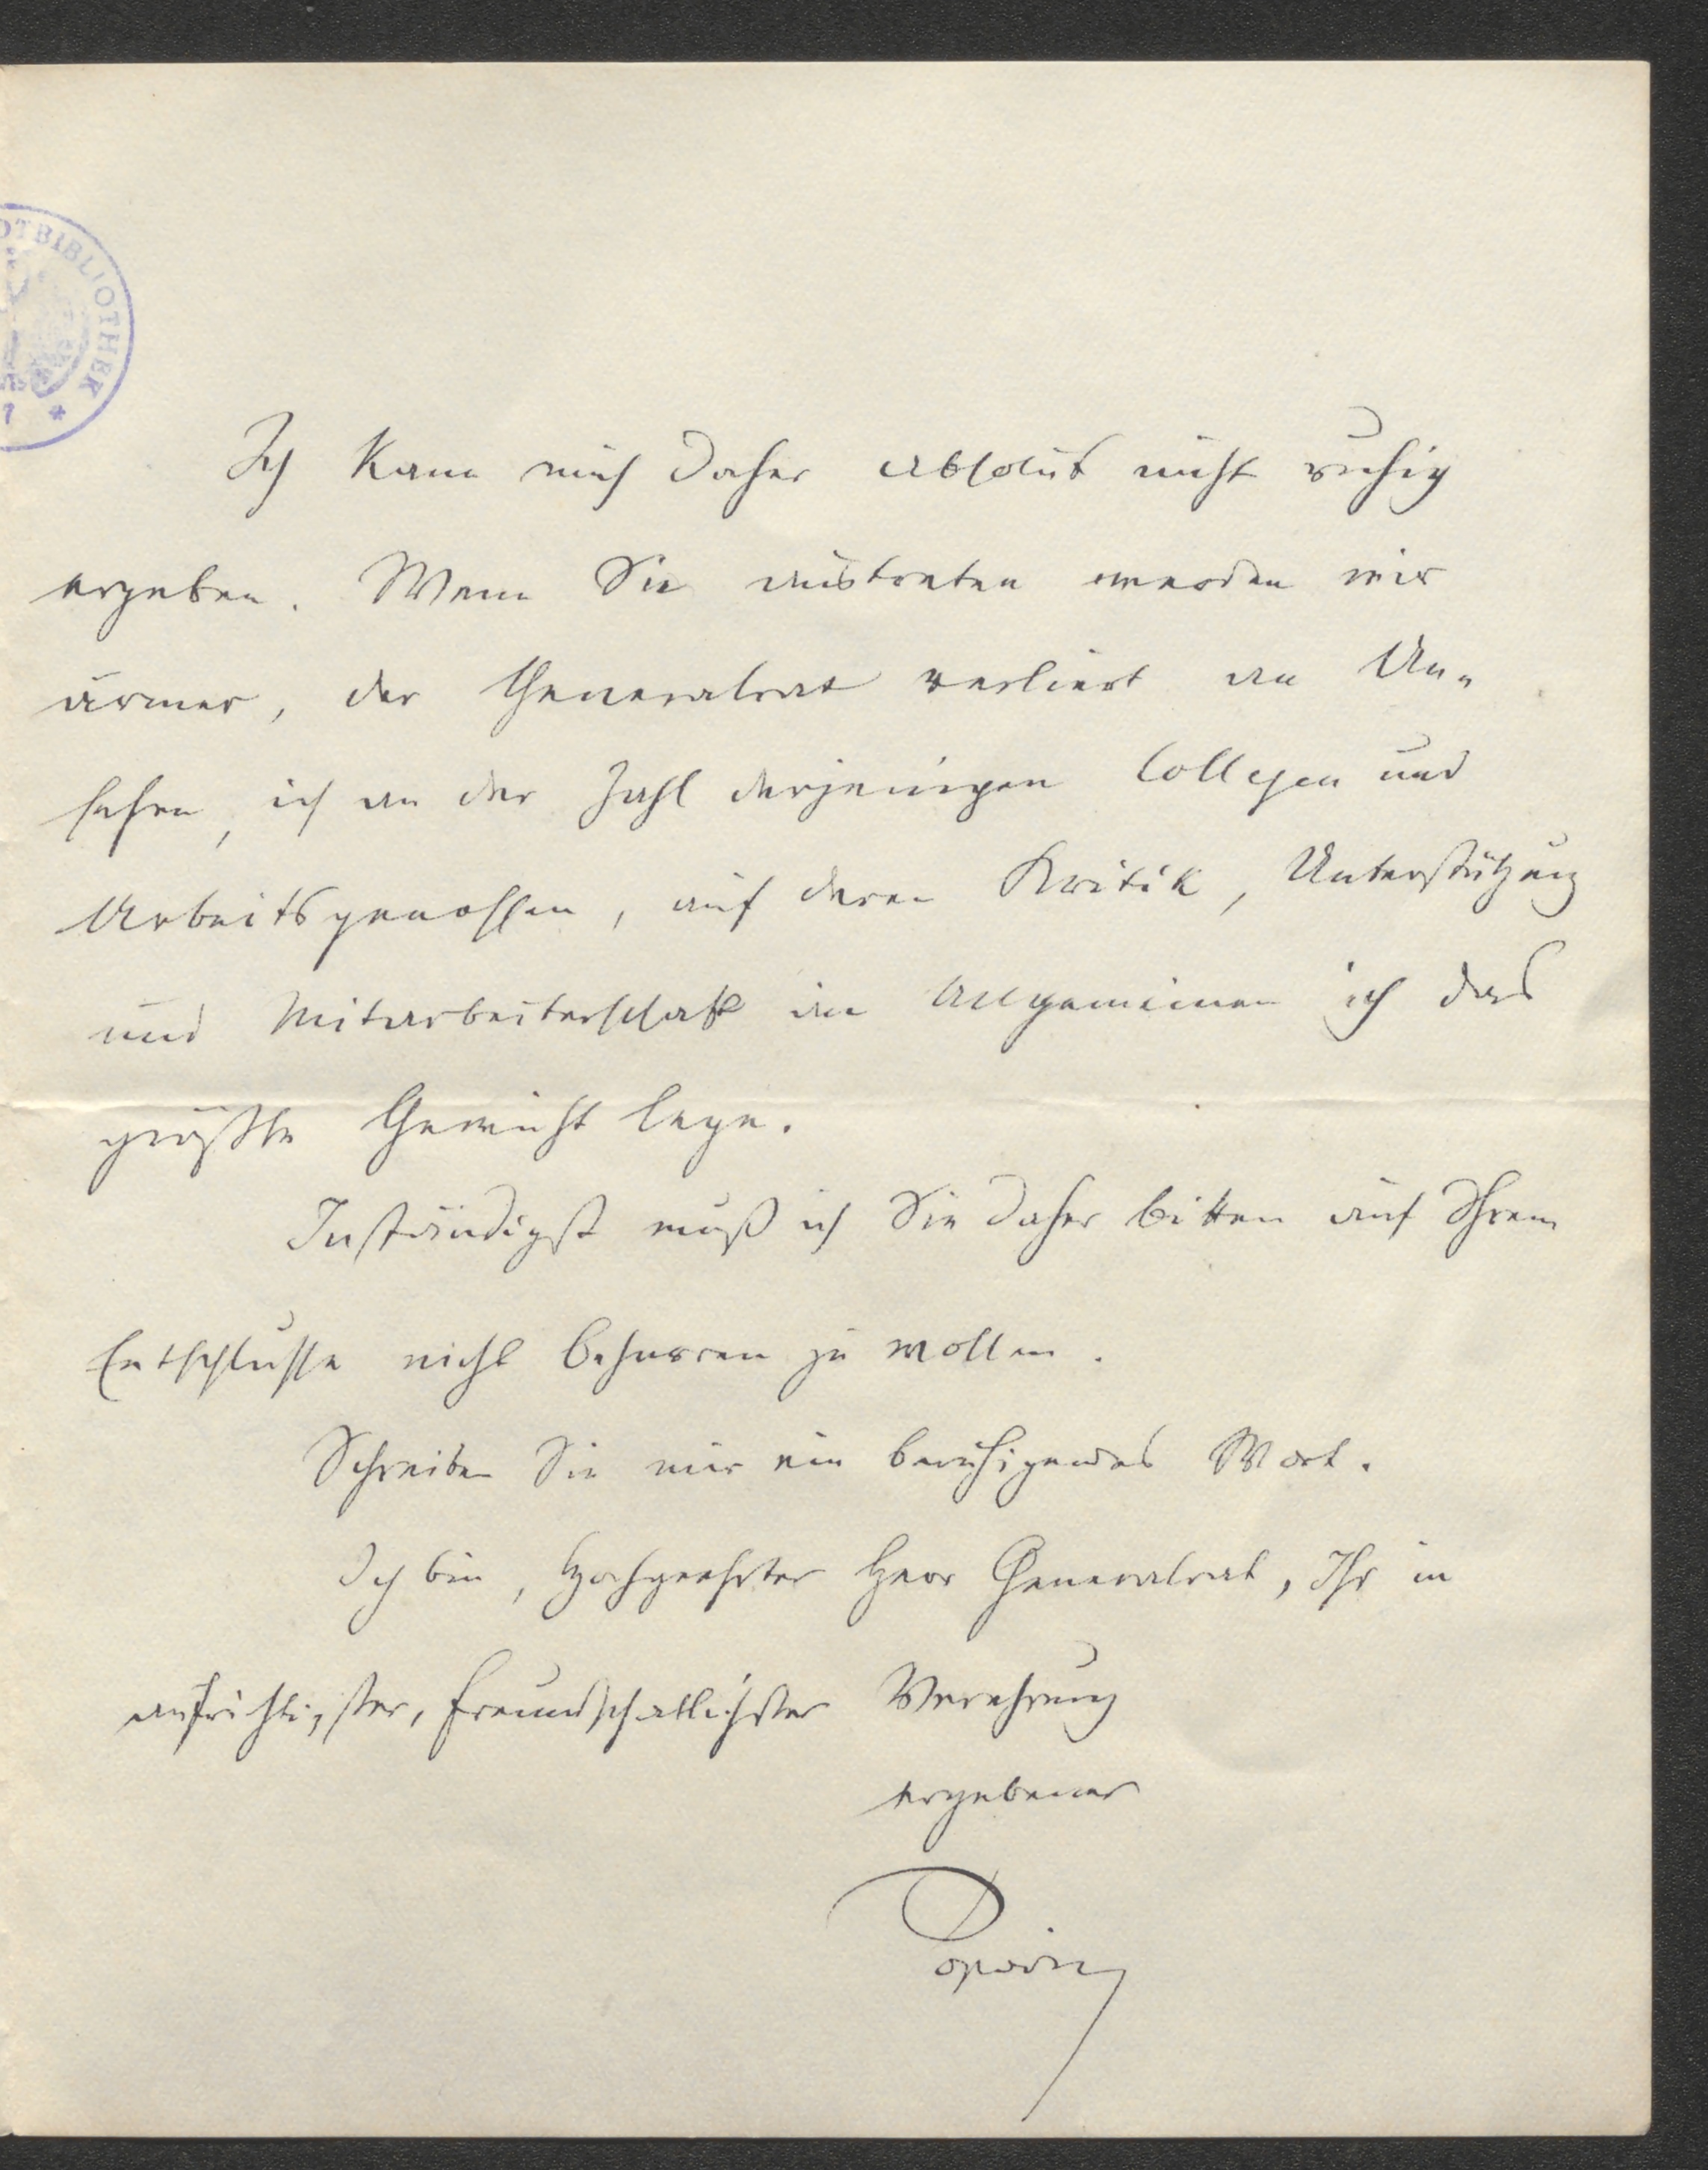 DTBIBLIOTHEK
Ich kann mich daher absolut nicht ruhig
ergeben. Wenn Sie austreten werden wir
ärmer, der Generalrat verliert an An-
sehen, ich an der Zahl derjenigen Collegen und
Arbeitsgenossen, auf deren Kritik, Unterstützung
und Mitarbeiterschaft im Allgemeinen ich das
größte Gewicht lege.
Inständigst muß ich Sie daher bitten auf Ihrem
Entschlusse nicht beharren zu wollen.
Schreiben Sie mir ein beruhigendes Wort.
Ich bin, Hochgeehrter Herr Generalrat, Ihr in
aufrichtigster, freundschaftlichster Verehrung
ergebener